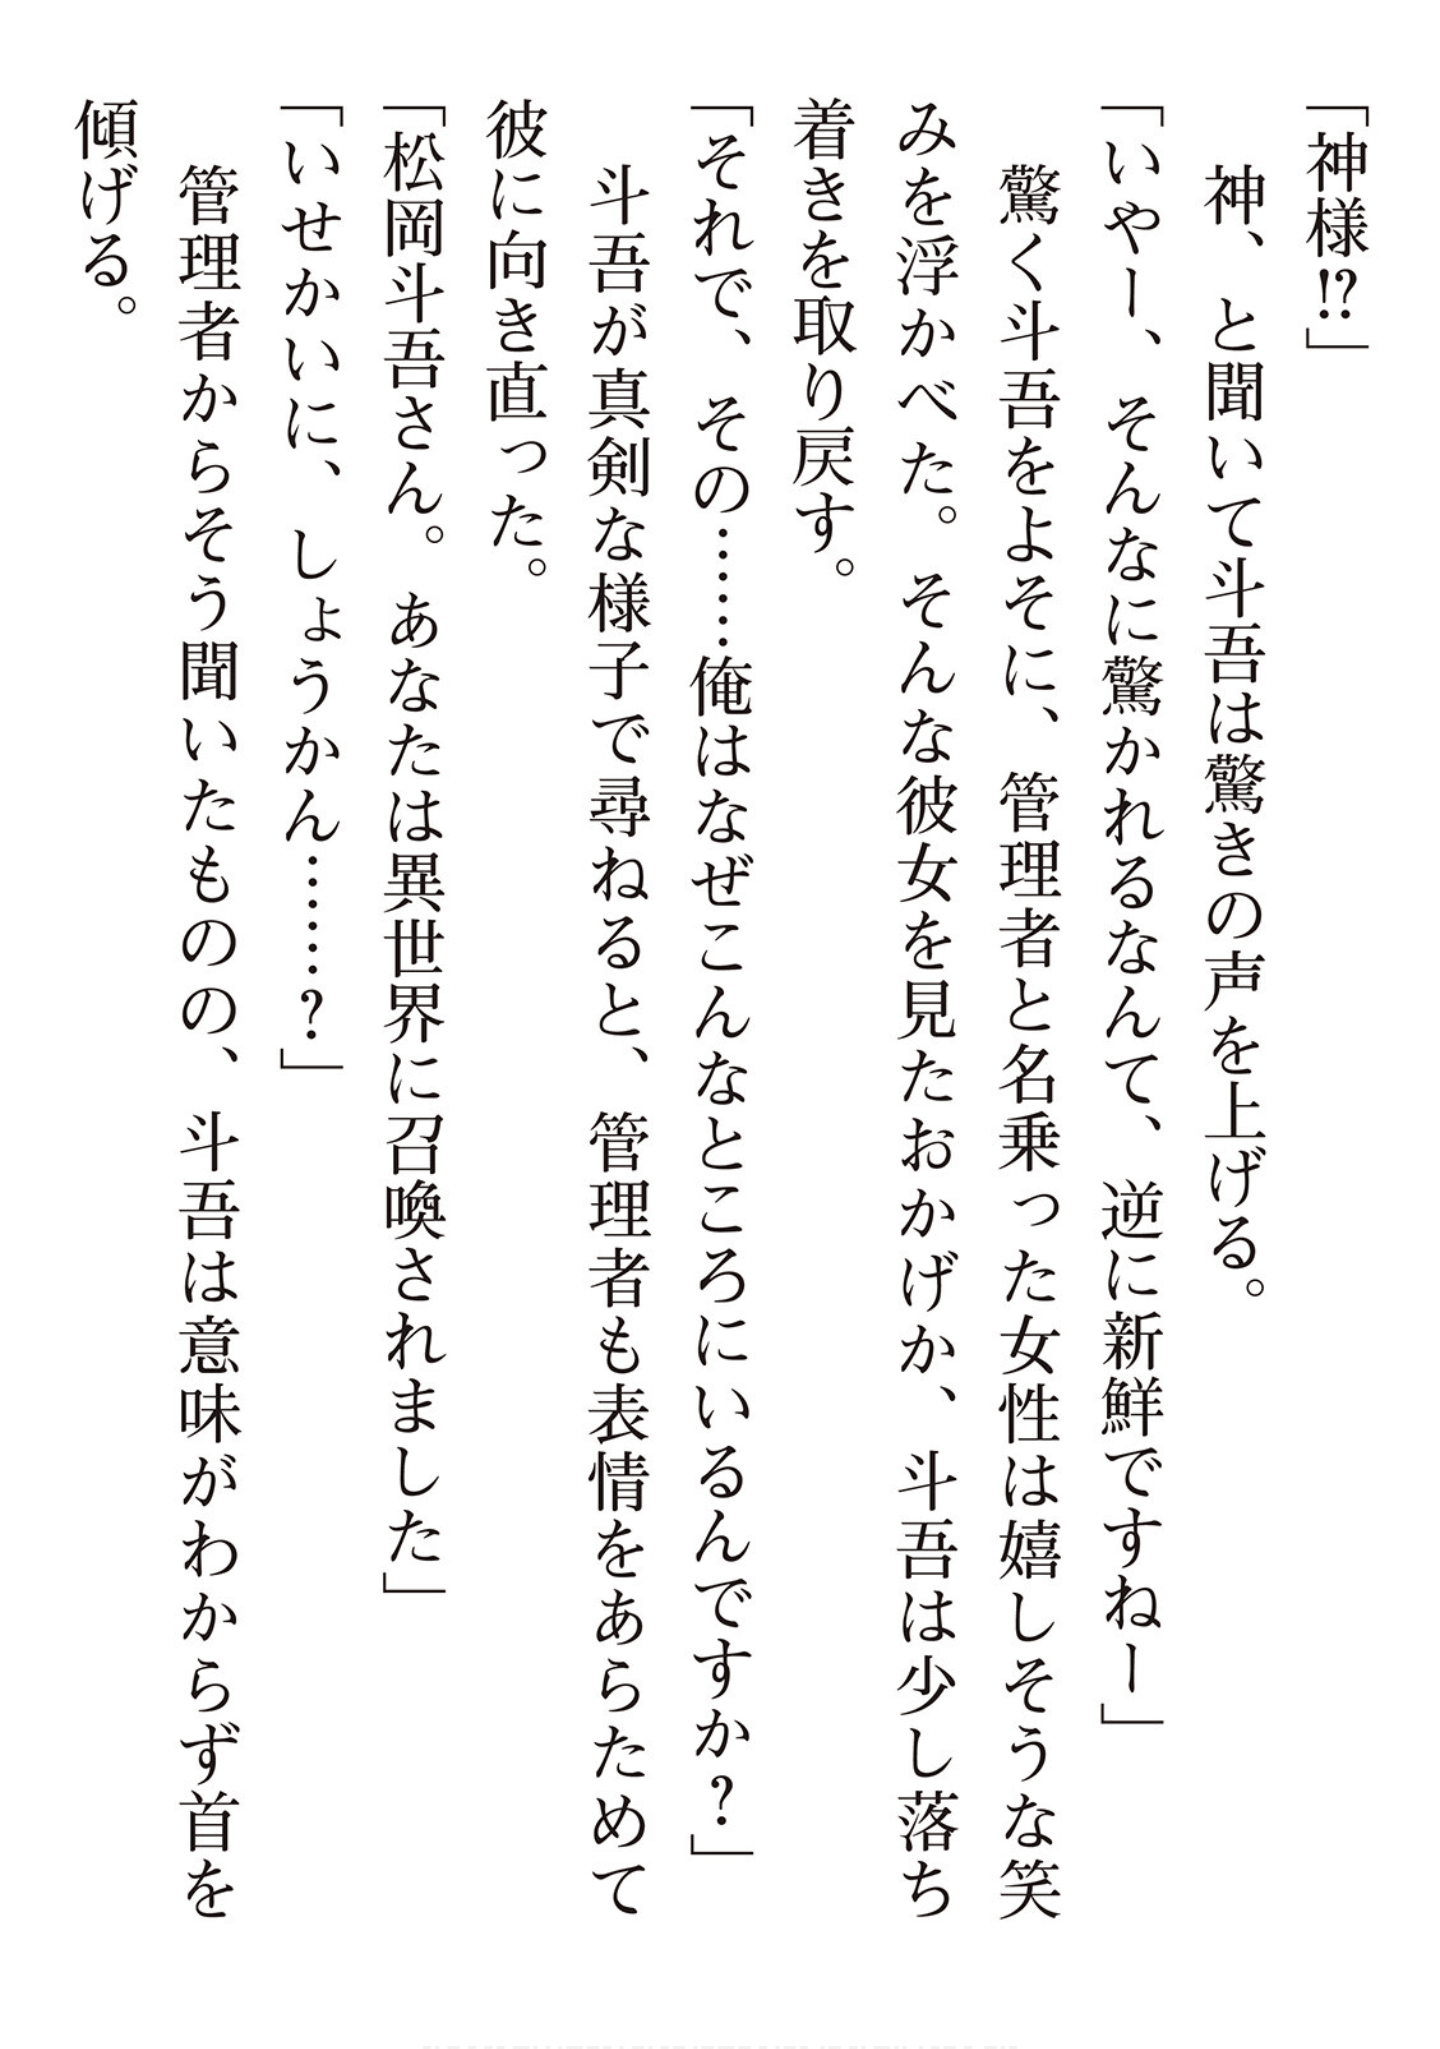 「神様⁉」
　神、と聞いて斗吾は驚きの声を上げる。
「いやー、そんなに驚かれるなんて、逆に新鮮ですねー」
　驚く斗吾をよそに、管理者と名乗った女性は嬉しそうな笑
みを浮かべた。そんな彼女を見たおかげか、斗吾は少し落ち
着きを取り戻す。
「それで、その……俺はなぜこんなところにいるんですか？」
　斗吾が真剣な様子で尋ねると、管理者も表情をあらためて
彼に向き直った。
「松岡斗吾さん。あなたは異世界に召喚されました」
「いせかいに、しょうかん……？」
　管理者からそう聞いたものの、斗吾は意味がわからず首を
傾げる。